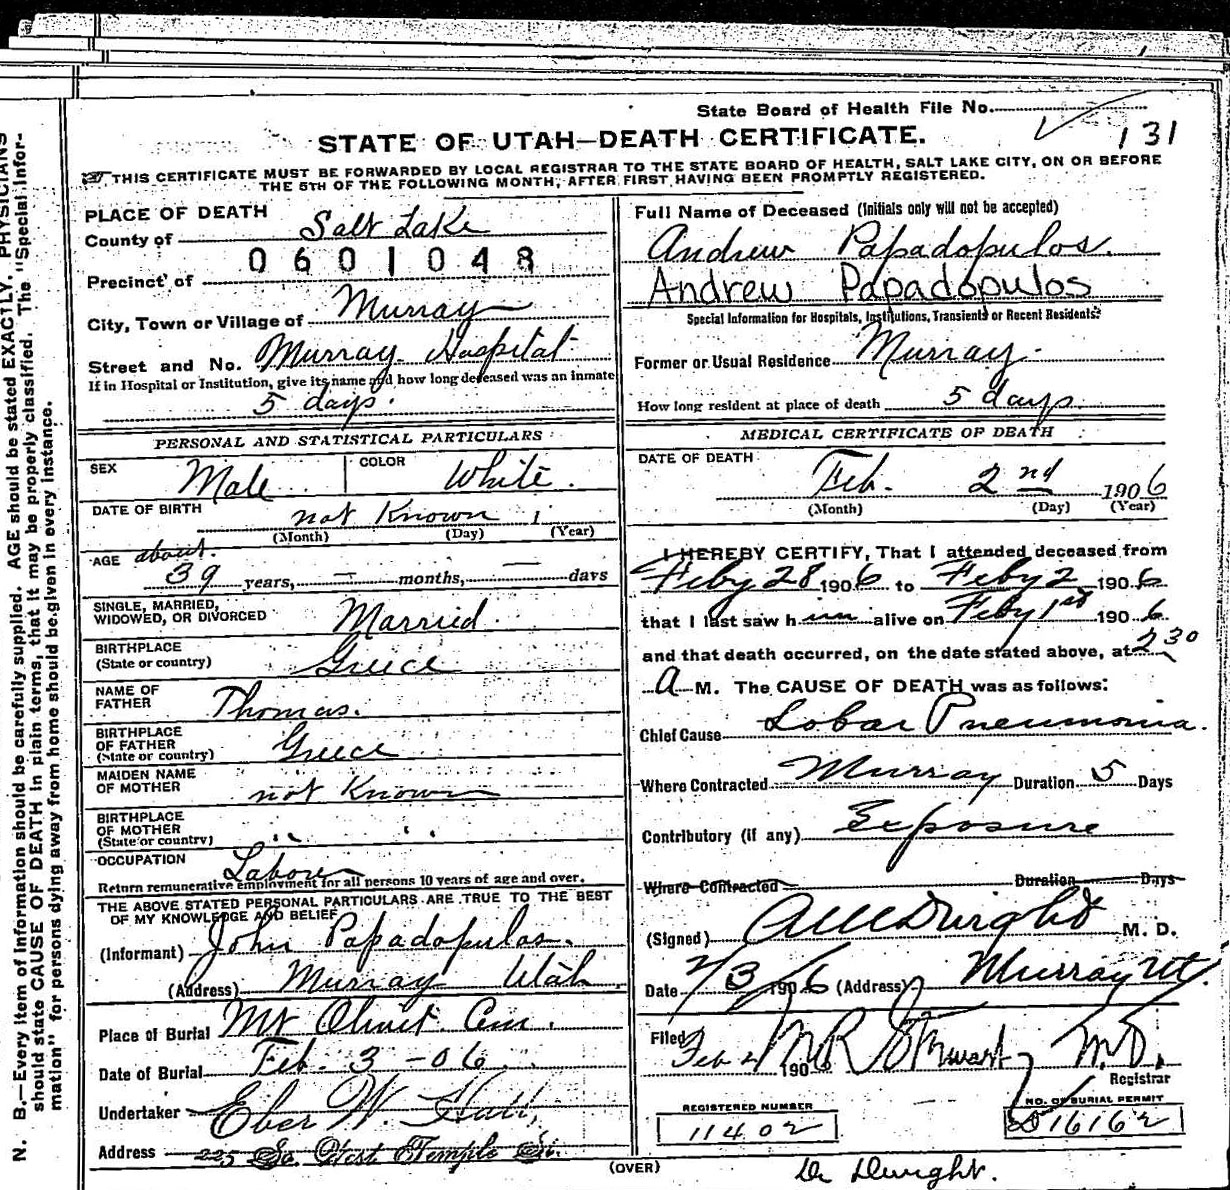 State Board of Health File No.
131
STATE OF UTAH—DEATH CERTIFICATE.
THIS CERTIFICATE MUST BE FORWARDED BY LOCAL REGISTRAR TO THE STATE BOARD OF HEALTH, SALT LAKE CITY, ON OR BEFORE
THE 5TH OF THE FOLLOWING MONTH, AFTER FIRST HAVING BEEN PROMPTLY REGISTERED.
PLACE OF DEATH
County of Salt Lake
0601048
Precinct of
City, Town or Village of Murray
Street and No. Murray Hospital
If in Hospital or Institution, give its name and how long deceased was an inmate
5 days.
PERSONAL AND STATISTICAL PARTICULARS
SEX Male COLOR White.
DATE OF BIRTH not Known 1
(Month) (Day) (Year)
AGE about.
39 years, — months, — days
SINGLE, MARRIED,
WIDOWED, OR DIVORCED Married.
BIRTHPLACE
(State or country) Greece
NAME OF
FATHER Thomas.
BIRTHPLACE
OF FATHER
(State or country) Greece
MAIDEN NAME
OF MOTHER not Known
BIRTHPLACE
OF MOTHER
(State or country) " "
OCCUPATION Laborer
Return remunerative employment for all persons 10 years of age and over.
THE ABOVE STATED PERSONAL PARTICULARS ARE TRUE TO THE BEST
OF MY KNOWLEDGE AND BELIEF
(Informant) John Papadopulos.
(Address) Murray Utah
Place of Burial Mt Olivet Cem.
Date of Burial Feb. 3 -06.
Undertaker Eber W. Hall,
Address 225 So. West Temple St.
Full Name of Deceased (Initials only will not be accepted)
Andrew Papadopulos.
Andrew Papadopulos
Special Information for Hospitals, Institutions, Transients or Recent Residents:
Former or Usual Residence Murray.
How long resident at place of death 5 days
MEDICAL CERTIFICATE OF DEATH
DATE OF DEATH
Feb. 2nd 1906
(Month) (Day) (Year)
I HEREBY CERTIFY, That I attended deceased from
Feby 28 1906 to Feby 2 1906
that I last saw him alive on Feby 1st 1906
and that death occurred, on the date stated above, at 2 30
A M. The CAUSE OF DEATH was as follows:
Chief Cause Lobar Pneumonia.
Where Contracted Murray Duration 5 Days
Contributory (if any) Exposure
Where Contracted Duration Days
(Signed) Dwight M. D.
Date 2/3 1906 (Address) Murray Ut.
Filed Feb 2 1906 M R Stewart M.D.
Registrar
REGISTERED NUMBER
11402
NO. OF BURIAL PERMIT
16162
(OVER)
Dr Dwight.
N. B.—Every item of information should be carefully supplied. AGE should be stated EXACTLY. PHYSICIANS
should state CAUSE OF DEATH in plain terms, that it may be properly classified. The "Special Infor-
mation" for persons dying away from home should be given in every instance.